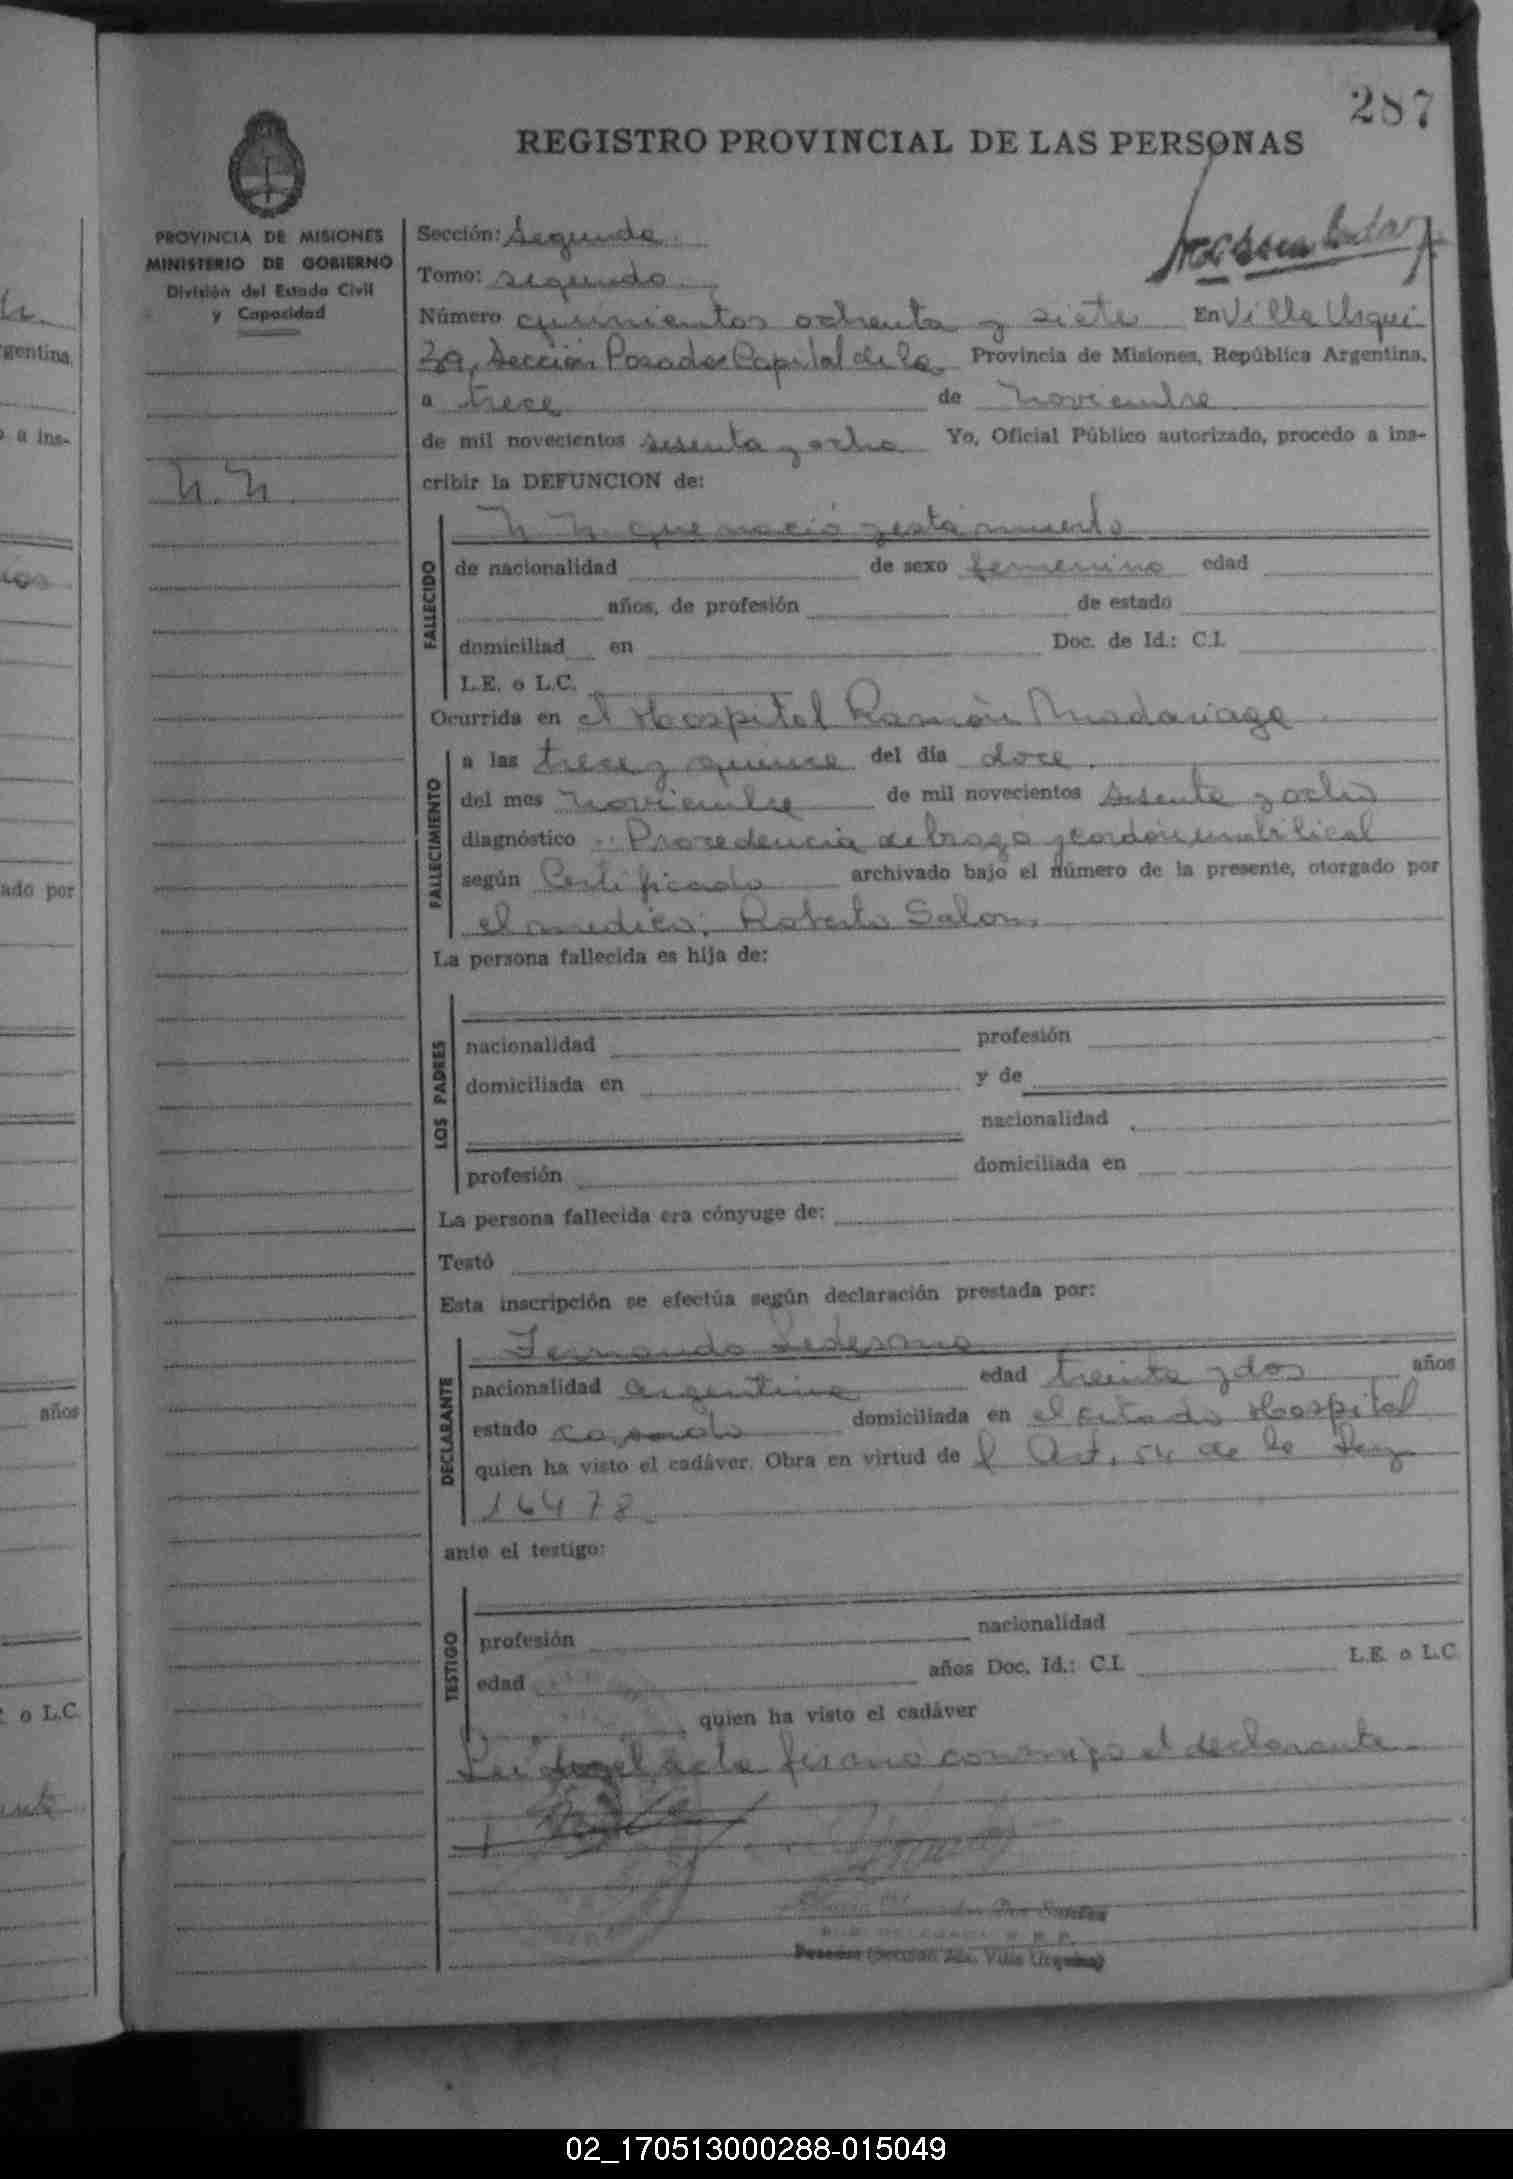 287
REGISTRO PROVINCIAL DE LAS PERSONAS
PROVINCIA DE MISIONES
MINISTERIO DE GOBIERNO
División del Estado Civil
y Capacidad
Sección: Segunda
Tomo: segundo
Número quinientos ochenta y siete En Villa Urqui
za, Sección Posadas Capital de la Provincia de Misiones, República Argentina,
a trece de Noviembre
de mil novecientos sesenta y ocho Yo, Oficial Público autorizado, procedo a ins-
cribir la DEFUNCION de:
N. N.
N. N. que nació y está muerto
FALLECIDO
de nacionalidad de sexo femenino edad
años, de profesión de estado
domiciliad en Doc. de Id.: C.I.
L.E. o L.C.
Ocurrida en el Hospital Ramón Madariaga
FALLECIMIENTO
a las trece y quince del día doce
del mes Noviembre de mil novecientos sesenta y ocho
diagnóstico Procedencia de brazo y cordón umbilical
según Certificado archivado bajo el número de la presente, otorgado por
el médico: Roberto Salom
La persona fallecida es hija de:
LOS PADRES
nacionalidad profesión
domiciliada en y de
nacionalidad
profesión domiciliada en
La persona fallecida era cónyuge de:
Testó
Esta inscripción se efectúa según declaración prestada por:
Fernando Ledesma
DECLARANTE
nacionalidad argentina edad treinta y dos años
estado casado domiciliada en el citado Hospital
quien ha visto el cadáver. Obra en virtud de l Art. 54 de la Ley
16478
ante el testigo:
TESTIGO
profesión nacionalidad
edad años Doc. Id.: C.I. L.E. o L.C.
quien ha visto el cadáver
el acta firmó conmigo el declarante
Posadas (Sección 2da. Villa Urquiza)
gentina,
o a ins-
ado por
años
o L.C.
02_170513000288-015049